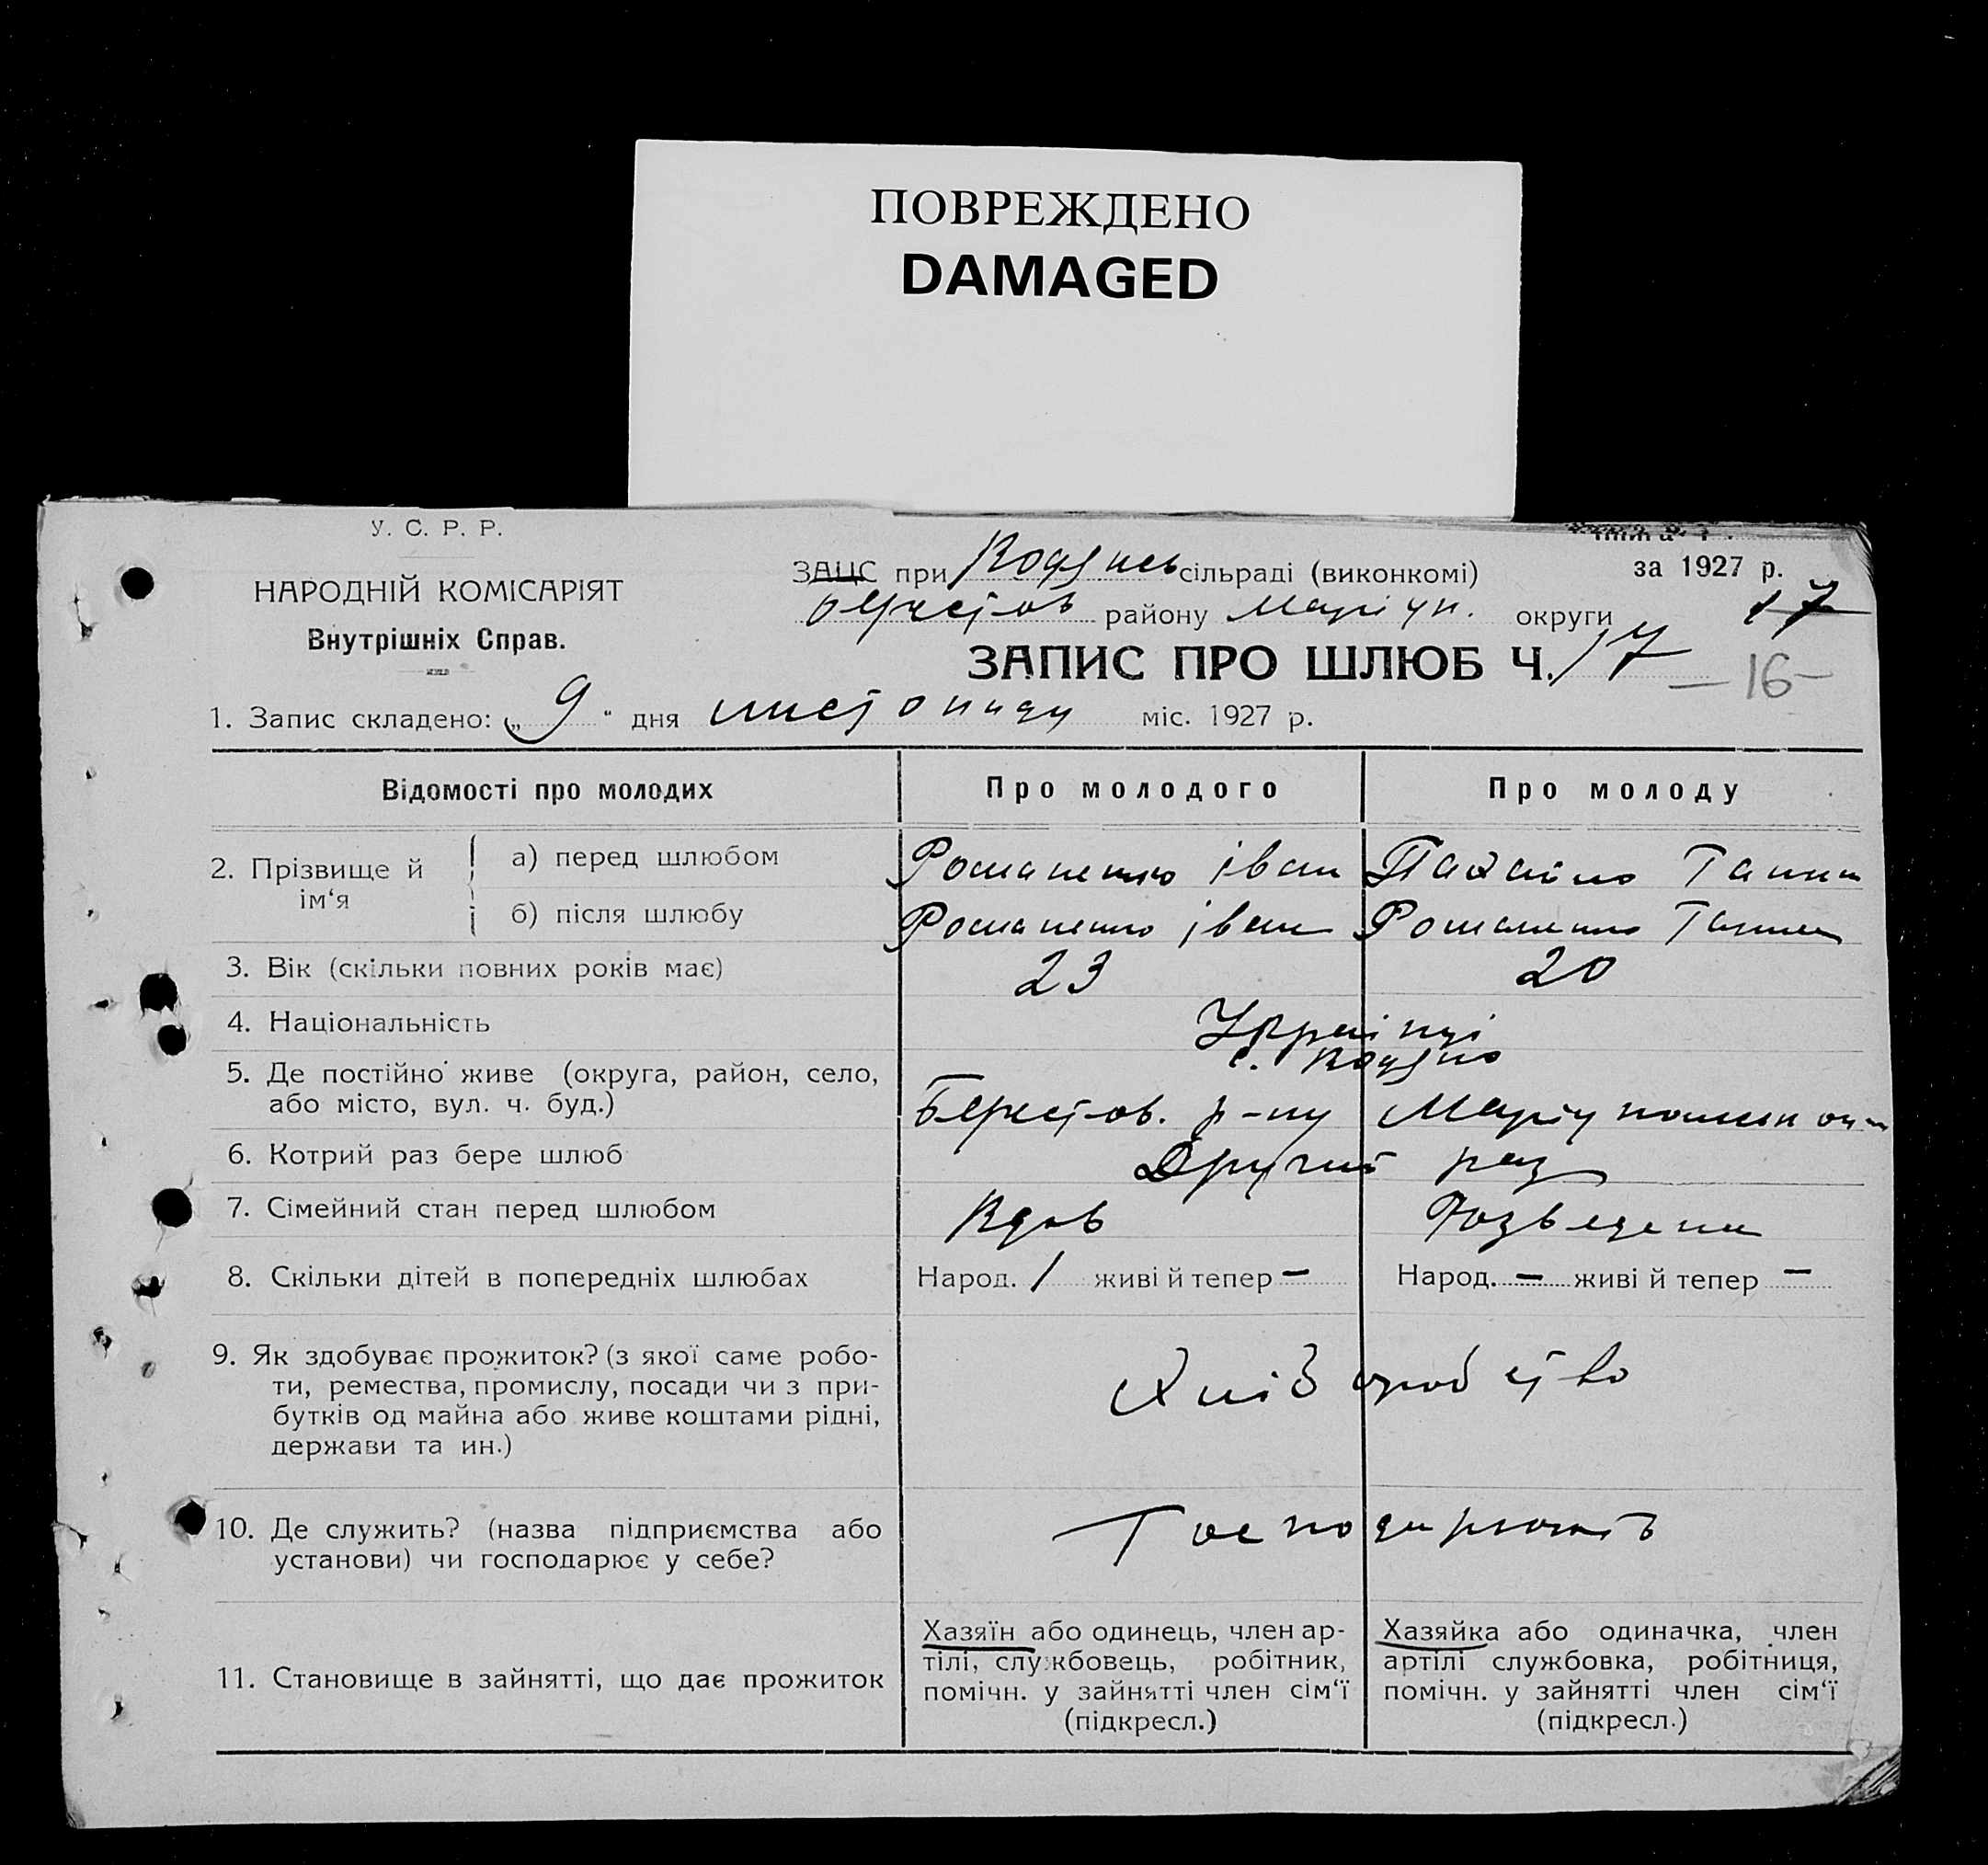 ПОВРЕЖДЕНО
DAMAGED
У. С. Р. Р.
НАРОДНІЙ КОМІСАРІЯТ
Внутрішніх Справ.
ЗАЦС при Водянсь сільраді (виконкомі)
за 1927 р.
Берестов району Маріуп. округи
17
ЗАПИС ПРО ШЛЮБ Ч. 17
— 16 —
1. Запис складено: „ 9 “ дня листопаду міс. 1927 р.
Відомості про молодих Про молодого Про молоду
2. Прізвище й ім‘я
а) перед шлюбом Романенко Іван Ганна
б) після шлюбу Романенко Іван Романенко Ганна
3. Вік (скільки повних років має) 23 20
4. Національність Українці
5. Де постійно живе (округа, район, село, с. Водяно
або місто, вул. ч. буд.) Берестов. р-ну Маріупольск окр
6. Котрий раз бере шлюб Другий раз
7. Сімейний стан перед шлюбом Вдов Розведена
8. Скільки дітей в попередніх шлюбах Народ. 1 живі й тепер — Народ. — живі й тепер —
9. Як здобуває прожиток? (з якої саме робо-
ти, ремества, промислу, посади чи з при-
бутків од майна або живе коштами рідні,
держави та ин.)
Хліборобство
10. Де служить? (назва підприємства або
установи) чи господарює у себе?
Господарюють
11. Становище в зайнятті, що дає прожиток
Хазяїн або одинець, член ар-
тілі, службовець, робітник,
помічн. у зайнятті член сім‘ї
(підкресл.)
Хазяйка або одиначка, член
артілі службовка, робітниця,
помічн. у зайнятті член сім‘ї
(підкресл.)